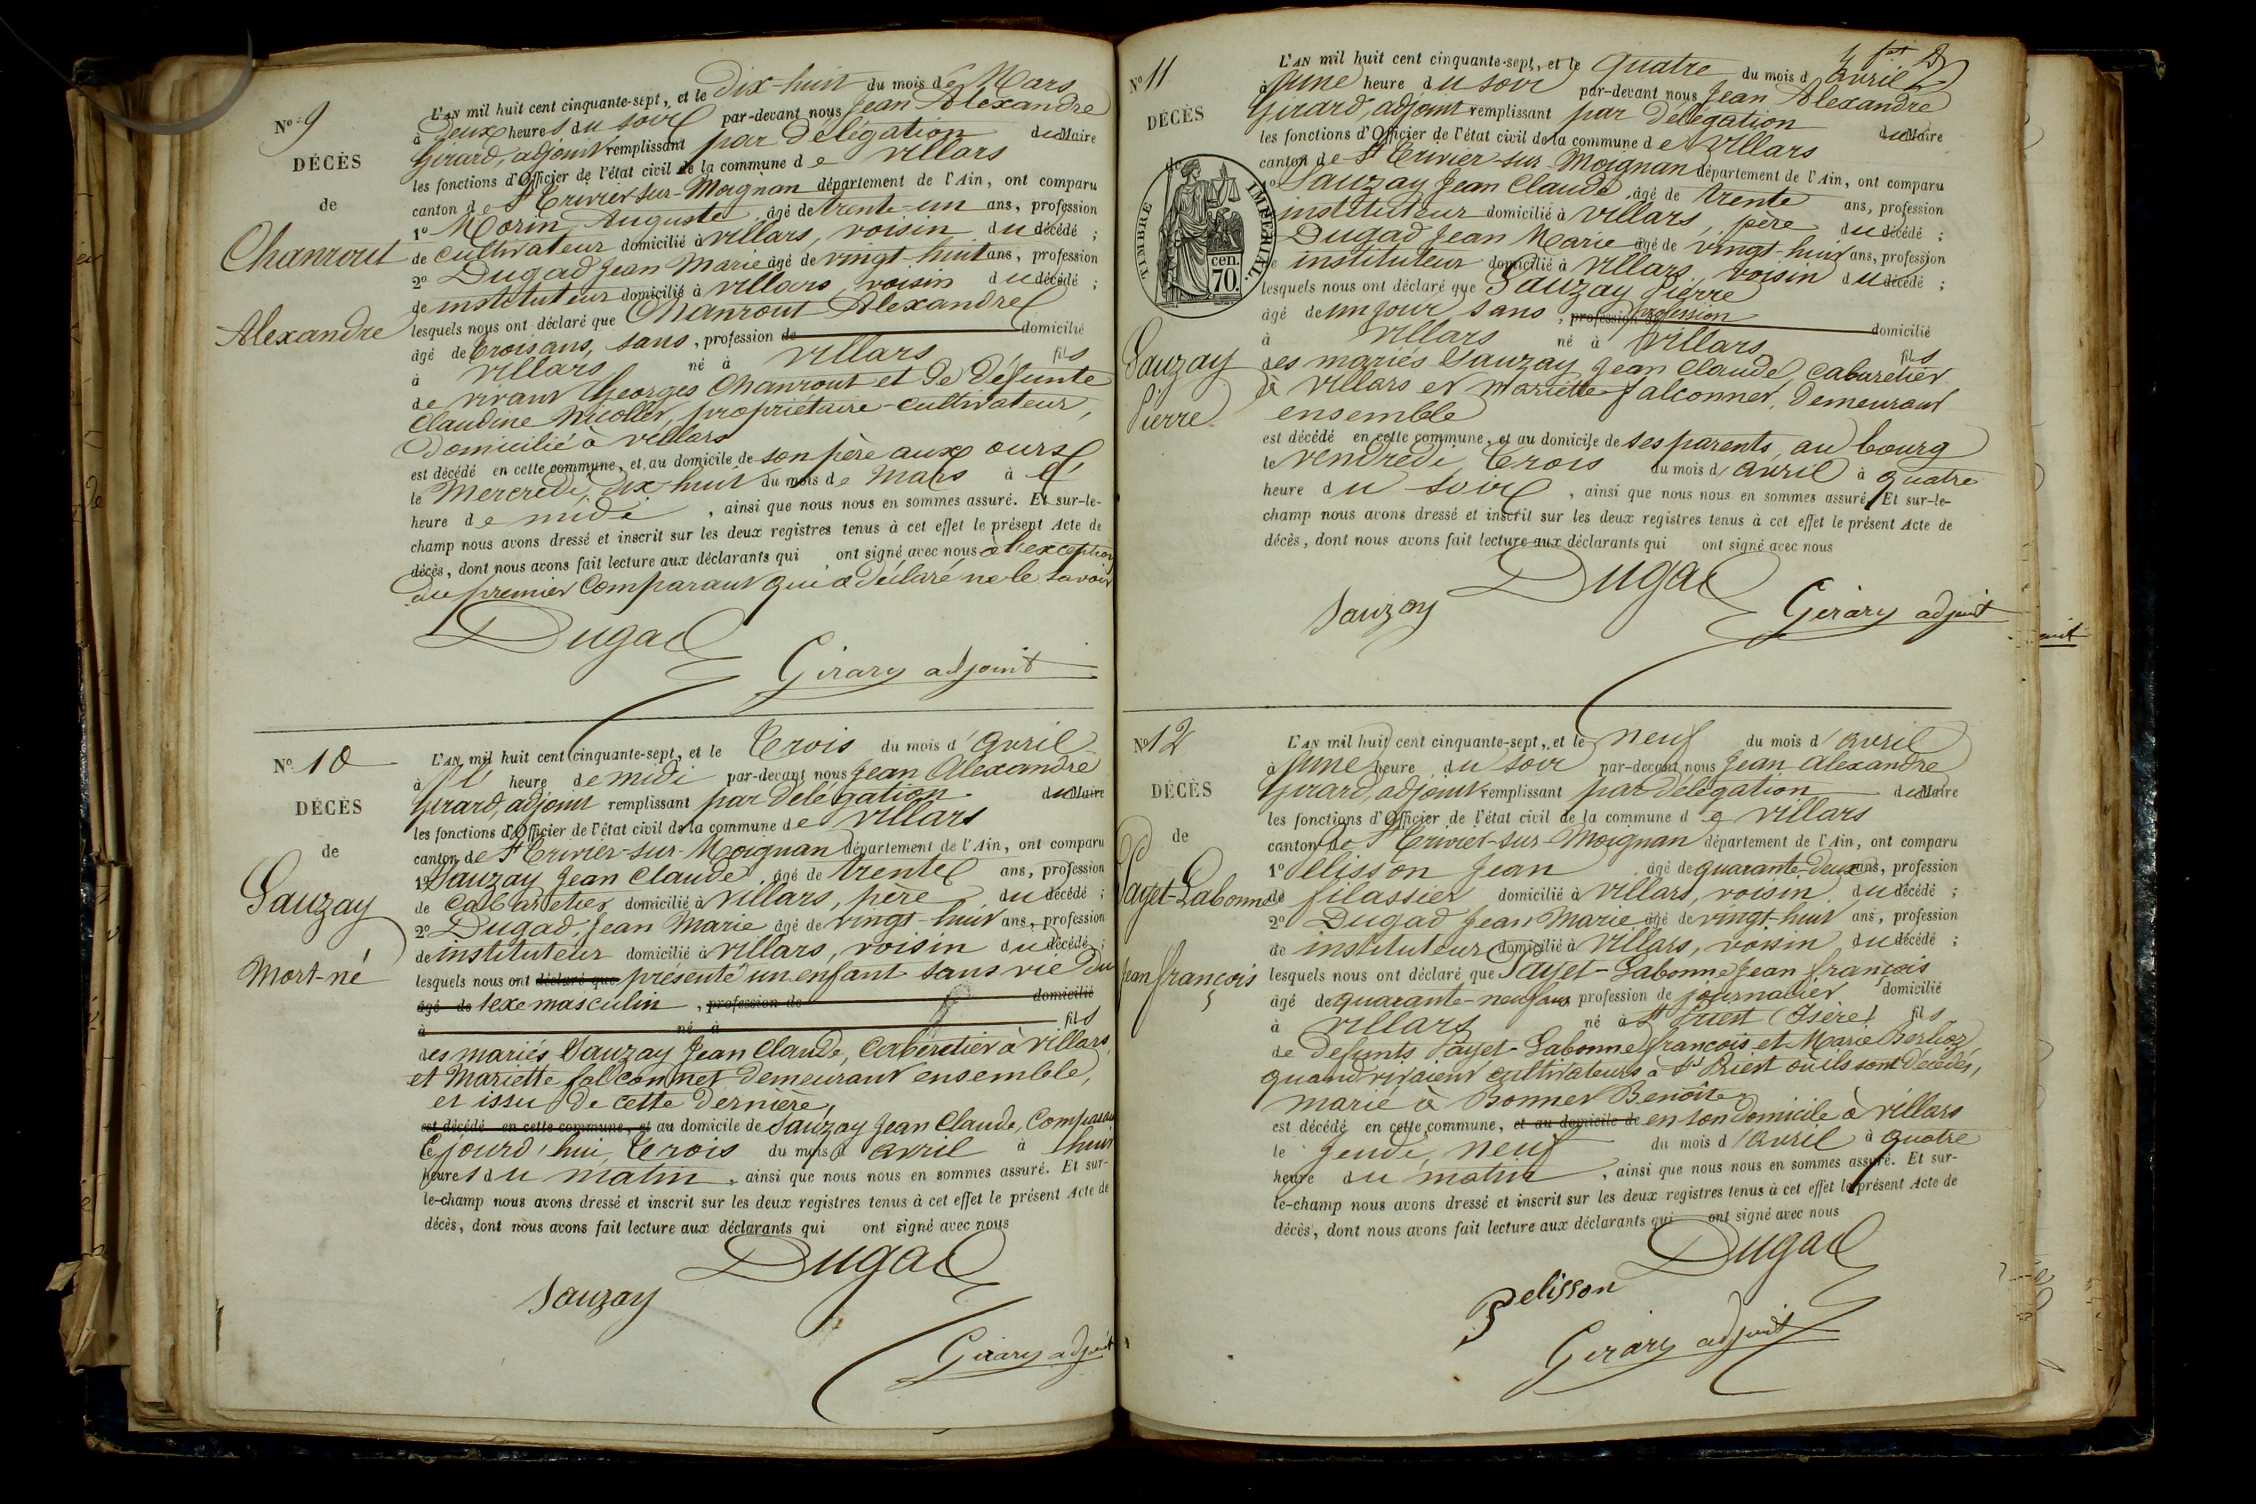 N° 9
DÉCÈS
de
Chanrout
Alexandre
L'AN mil huit cent cinquante-sept, et le Dix-huit du mois de Mars
à Deux heures du soir par-devant nous Jean Alexandre
Girard, adjoint remplissant par délégation du Maire
les fonctions d'Officier de l'état civil de la commune de villars
canton de St Trivier-sur-Moignan département de l'Ain, ont comparu
1° Morin Auguste, âgé de trente-un ans, profession
de cultivateur domicilié à villars, voisin du décédé ;
2° Dugad Jean Marie âgé de vingt-huit ans, profession
de instituteur domicilié à villars, voisin du décédé ;
lesquels nous ont déclaré que Chanrout Alexandre
âgé de trois ans, sans, profession de domicilié
à villars né à villars fils
de vivant Georges Chanrout et de défunte
Claudine Nicollet, propriétaire-cultivateur,
Domicilié à villars
est décédé en cette commune, et au domicile de son père aux ours
le Mercredi dix-huit du mois de Mars à l'
heure de midi, ainsi que nous nous en sommes assuré. Et sur-le-
champ nous avons dressé et inscrit sur les deux registres tenus à cet effet le présent Acte de
décès, dont nous avons fait lecture aux déclarants qui ont signé avec nous à l'exception
du premier comparant qui a déclaré ne le savoir
Dugad
Girard adjoint
N° 10
DÉCÈS
de
Sauzay
Mort-né
L'AN mil huit cent cinquante-sept, et le trois du mois d'avril
à l' heure de midi par-devant nous Jean Alexandre
Girard, adjoint remplissant par Délégation du Maire
les fonctions d'Officier de l'état civil de la commune de villars
canton de St Trivier-sur-Moignan département de l'Ain, ont comparu
1° Sauzay Jean Claude, âgé de trente ans, profession
de Cabaretier domicilié à villars, père du décédé ;
2° Dugad, Jean Marie âgé de vingt-huit ans, profession
de instituteur domicilié à villars, voisin du décédé ;
lesquels nous ont déclaré que présenté un enfant sans vie du
âgé de sexe masculin, profession de domicilié
à né à fils
des mariés Sauzay Jean Claude, Cabaretier à villars,
et Mariette falconnet demeurant ensemble,
et issu de cette dernière,
est décédé en cette commune, et au domicile de Sauzay Jean Claude, Comparant
Ce jourd'hui trois du mois d'avril à huit
heures du matin, ainsi que nous nous en sommes assuré. Et sur-
le-champ nous avons dressé et inscrit sur les deux registres tenus à cet effet le présent Acte de
décès, dont nous avons fait lecture aux déclarants qui ont signé avec nous
Dugad
Sauzay
Girard adjoint
N° 11
DÉCÈS
de
TIMBRE IMPÉRIAL
cen.
70.
Sauzay
Pierre
L'AN mil huit cent cinquante-sept, et le quatre du mois d'avril
à une heure du soir par-devant nous Jean Alexandre
Girard, adjoint remplissant par Délégation du Maire
les fonctions d'Officier de l'état civil de la commune de villars
canton de St Trivier-sur-Moignan département de l'Ain, ont comparu
1° Sauzay Jean Claude, âgé de trente ans, profession
instituteur domicilié à villars, père du décédé ;
Dugad Jean Marie âgé de vingt-huit ans, profession
de instituteur domicilié à villars, voisin du décédé ;
lesquels nous ont déclaré que Sauzay Pierre
âgé de un jour, sans, profession de profession domicilié
à villars né à villars fils
des mariés Sauzay Jean Claude, cabaretier
à villars et Mariette falconnet, demeurant
ensemble
est décédé en cette commune, et au domicile de ses parents, au bourg
le vendredi trois du mois d'avril à quatre
heure du soir, ainsi que nous nous en sommes assuré. Et sur-le-
champ nous avons dressé et inscrit sur les deux registres tenus à cet effet le présent Acte de
décès, dont nous avons fait lecture aux déclarants qui ont signé avec nous
Dugad
Sauzay
Girard adjoint
N° 12
DÉCÈS
de
Payet-Labonne
Jean françois
L'AN mil huit cent cinquante-sept, et le neuf du mois d'avril
à une heure du soir par-devant nous Jean Alexandre
Girard, adjoint remplissant par délégation du Maire
les fonctions d'Officier de l'état civil de la commune de villars
canton de St Trivier-sur-Moignan département de l'Ain, ont comparu
1° Pelisson Jean âgé de quarante-deux ans, profession
de filassier domicilié à villars, voisin du décédé ;
2° Dugad Jean Marie âgé de vingt-huit ans, profession
de instituteur domicilié à villars, voisin du décédé ;
lesquels nous ont déclaré que Payet-Labonne Jean françois
âgé de quarante-neuf ans profession de journalier domicilié
à villars né à St Priest (Isère) fils
de défunts Payet-Labonne françois et Marie Berlioz
quand vivaient cultivateurs à St Priest où ils sont décédés,
marié à Bonnet Benoîte
est décédé en cette commune, et au domicile de en son domicile à villars
le Jeudi, neuf du mois d'avril à quatre
heure du matin, ainsi que nous nous en sommes assuré. Et sur-
le-champ nous avons dressé et inscrit sur les deux registres tenus à cet effet le présent Acte de
décès, dont nous avons fait lecture aux déclarants qui ont signé avec nous
Dugad
Pelisson
Girard adjoint